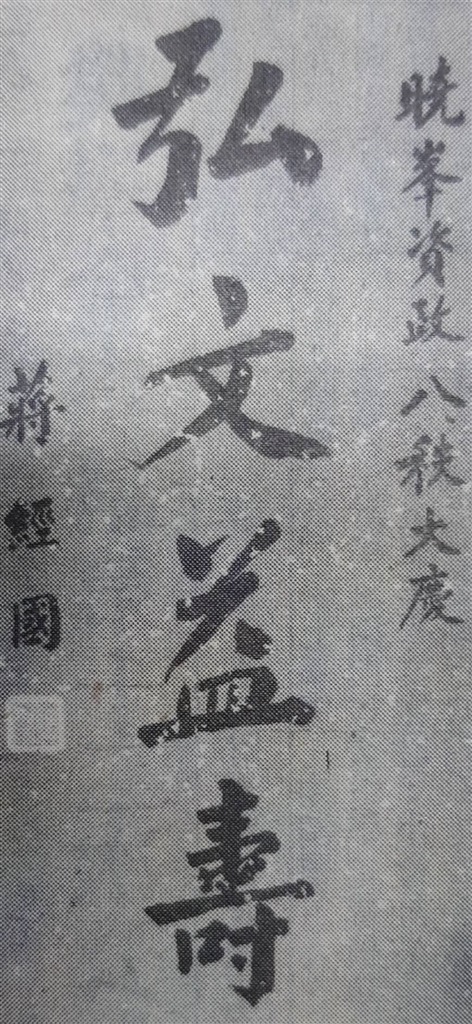 曉峯資政八秩大慶
弘文益壽
蔣經國